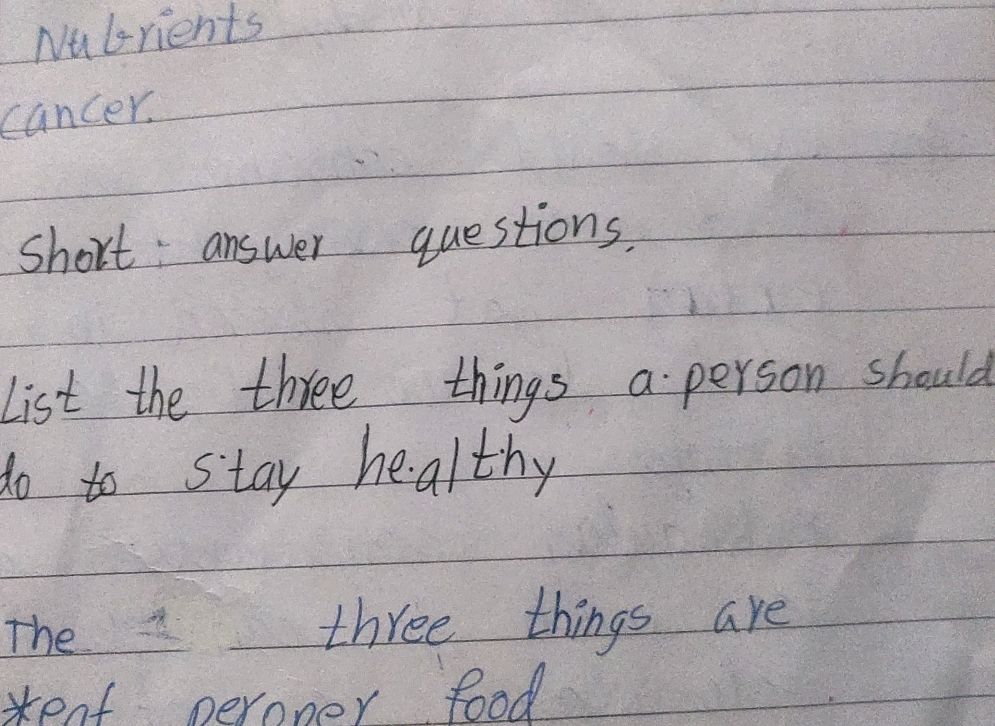 Nutrients
cancer.
Short: answer questions.
List the three things a. person should
do to stay healthy
The three things are
*eat peroper food